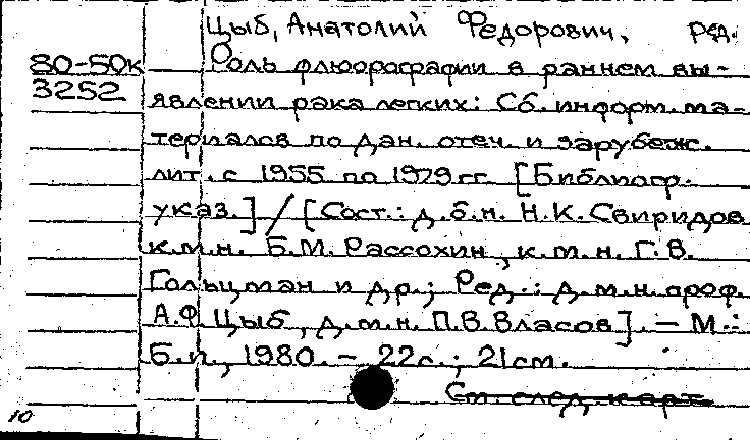 Цыб, Анатолий Федорович, ред.
80-50к Роль флюорографии в раннем вы-
3252
явлении рака легких: Сб. информ. ма-
териалов по дан. отеч. и зарубеж.
лит. с 1955 по 1979 гг. [Библиогр.
указ.] / [Сост.: д.б.н. Н.К. Свиридов
к.м.н. Б.М. Рассохин, к.м.н. Г.В.
Гольцман и др.; Ред.: д.м.н. проф.
А.Ф. Цыб, д.м.н. П.В. Власов]. — М.:
Б.и., 1980. - 22с.; 21см.
См. след. карт.
10